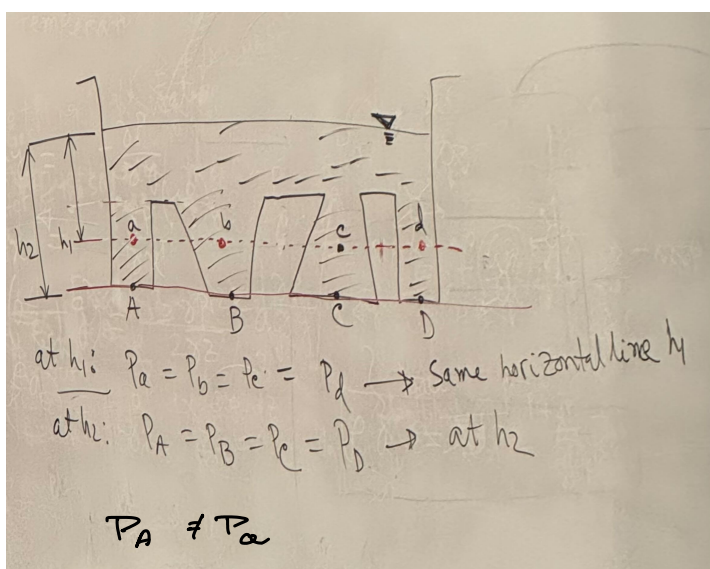 h2
h1
a
b
c
d
A
B
C
D
at h1: Pa = Pb = Pc = Pd → Same horizontal line h1
at h2: PA = PB = PC = PD → at h2
PA ≠ Pa